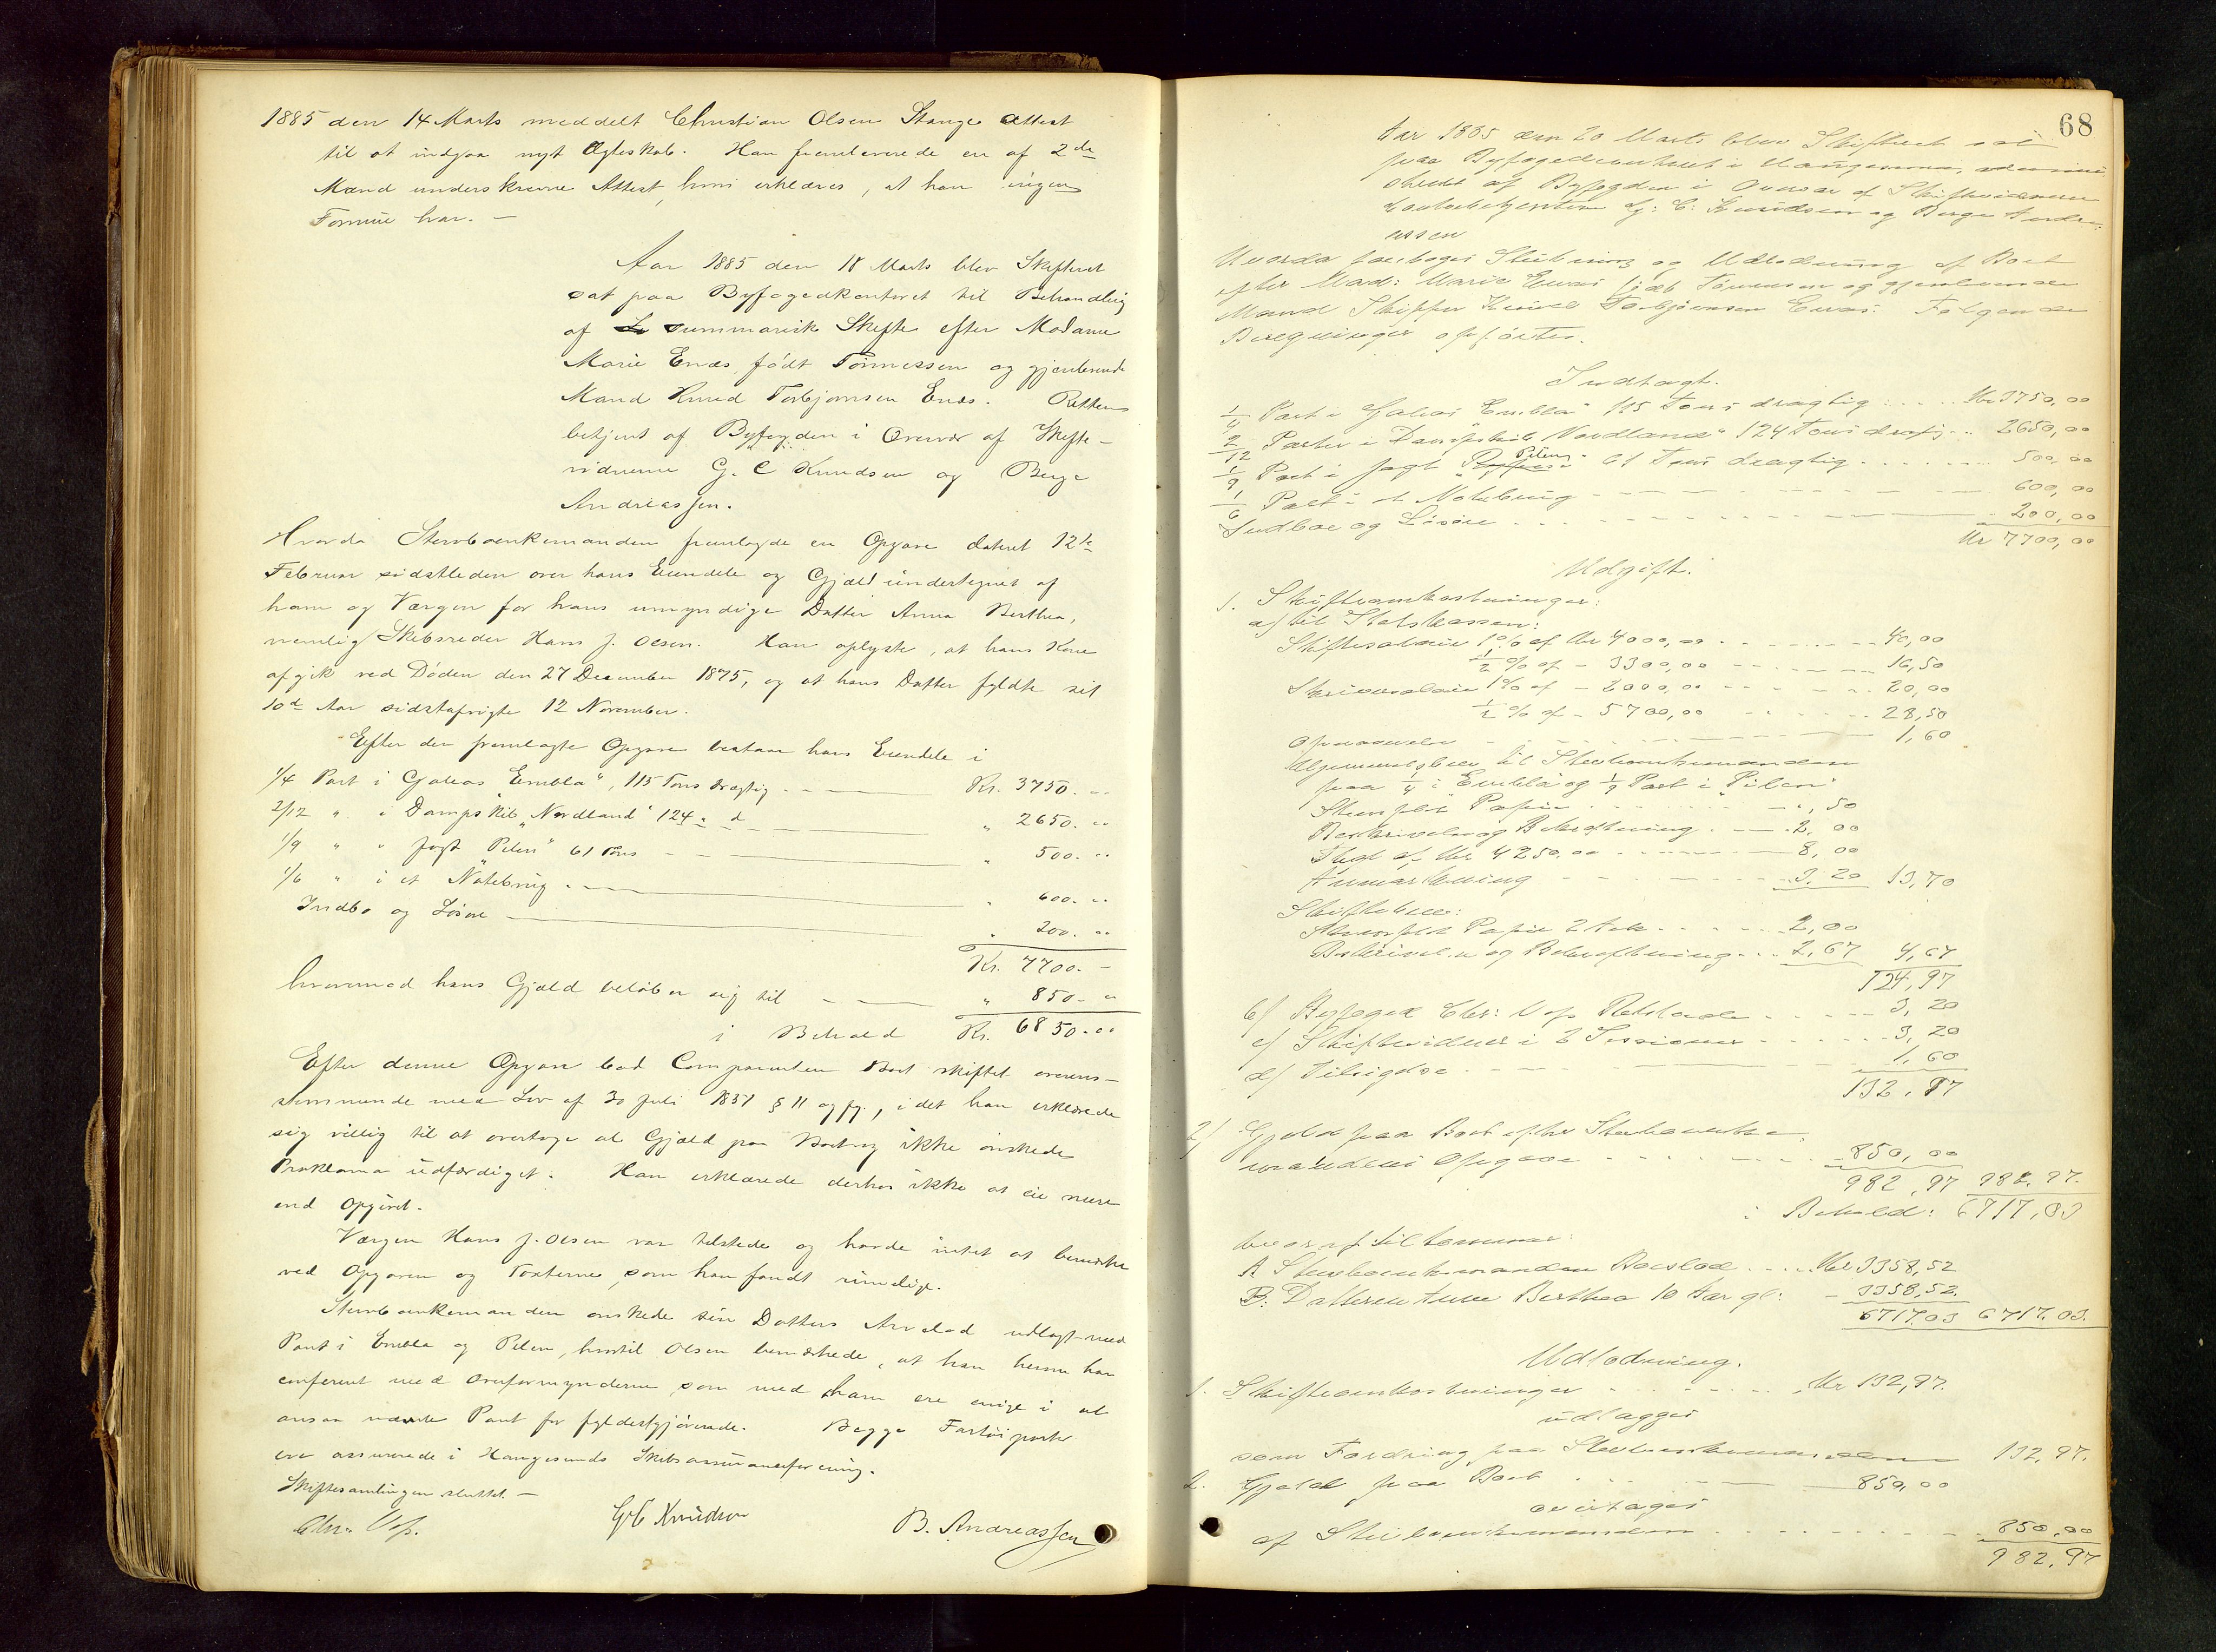 1885 den 14 Marts meddelt Christian Olsen Stange Attest
til at indgaa nyt Ægteskab. Han fremleverede en af 2de
Mænd underskreven Attest, hvori erklæres, at han ingen
Formue har. —
Aar 1885 den 18 Marts blev Skifteret
sat paa Byfogedkontoret til Behandling
af summarisk Skifte efter Madame
Marie Enæs, født Tönnessen og gjenlevende
Mand Knud Torbjörnsen Enæs. Retten
betjent af Byfogden i Overvær af Skifte-
vidnerne G. C Knudsen og Berge
Andreassen.
Hvorda Stervboenkemanden fremlagde en Opgave dateret 12te
Februar sidstleden over hans Eiendele og Gjæld undertegnet af
ham og Værgen for hans umyndige Datter Anna Berthea,
nemlig Skibsreder Hans J. Olsen. Han oplyste, at hans Kone
afgik ved Døden den 27 December 1875, og at hans Datter fyldte sit
10de Aar sidstafvigte 12 November.
Efter den fremlagte Opgave bestaar hans Eiendele i
1/4 Part i Galeas "Embla", 115 Tons drægtig — Kr. 3750. "
2/12 " i Dampskib "Nordland" 124 " d — " 2650. "
1/9 " " Jagt "Pilen" 61 Tons — " 500. "
1/6 " i et Notebrug — " 600. "
Indbo og Løsøre — " 200. "
Kr. 7700. —
hvorimod hans Gjæld beløber sig til — " 850. "
i Behold Kr. 6850. "
Efter denne Opgave bad Comparenten Boet skiftet overens-
stemmende med Lov af 30 Juli 1851 § 11 og fg., idet han erklærede
sig villig til at overtage al Gjæld paa Boet og ikke ønskede
Proklama udfærdiget. Han erklærede derhos ikke at eie mere
end opgivet.
Værgen Hans J. Olsen var tilstede og havde intet at bemærke
ved Opgaven og Taxterne, som han fandt rimelige.
Stervboenkemanden ønskede sin Datters Arvelod udlagt med
Pant i Embla og Pilen, hvortil Olsen bemærkede, at han herom har
confereret med Overformynderne, som med ham ere enige i at
ansaa nævnte Pant for fyldestgjørende. Begge Fartøiparter
ere assurerede i Haugesunds Skibsassuranceforening.
Skiftesamlingen sluttet. —
Chr. Vos. G C Knudsen B. Andreassen
68
Aar 1885 den 20 Marts blev Skifteret sat
paa Byfogedkontoret i Haugesund, admini-
streret af Byfogden i Overvær af Skiftevidnerne
Kontorbetjentene G: C: Knudsen og Berge Andre-
assen
Hvorda foretoges Slutning og Udlodning af Boet
efter Mad: Marie Enæs födt Tönnesen og gjenlevende
Mand Skipper Knud Torbjörnsen Enæs. Følgende
Beregninger opførtes.
Indtægt.
1/4 Part i Galeas "Embla" 115 Tons drægtig . . . . Kr 3750,00
2/12 Parter i Dampskib "Nordland" 124 Tons drægtig . . 2650,00
1/9 Part i Jagt "Pilen" 61 Tons drægtig . . . . 500,00
1/6 Part i et Notebrug — 600,00
Indboe og Løsøre . . . 200,00
Kr 7700,00
Udgift.
1. Skifteomkostninger:
a/ til Statskassen:
Skiftesalair 1% af Kr 4000,00 . . 40,00
1/2 % af – 3300,00 — 16,50
Skriversalair 1% af – 2000,00 . . 20,00
1/2 % af – 5700,00 . . 28,50
— 1,60
til Stervboenkemanden
paa 1/4 i "Embla" og 1/9 Part i "Pilen"
Stemplet Papir . . . – ",50
Beskrivelse og Bekræftning . — . 2,00
af Kr 4250,00 . . . 8,00
Anmærkning . . . 3.20 13,70
Skiftebrev:
Stemplet Papir 2 Ark . . . 2,00
Beskrivelse og Bekræftning . . . 2,67 4,67
124,97
b/ Byfoged Chr: Vos . . . 3,20
c/ Skiftevidner i 2 Sessioner . . . 3,20
d/ Tilsigelse . . . 1,60
132,97
2/ Gjæld paa Boet efter Stervboenke-
mandens Opgave . . . 850,00
982,97 982,97.
i Behold: 6717,03
hvoraf tilkommer:
A Stervboenkemanden Boeslod . . . Kr 3358,52
B: Datteren Anna Berthea 10 Aar gl: – 3358,52.
6717.03 6717.03.
Udlodning.
1. Skifteomkostninger . . . Kr 132,97.
udlægges
som Fordring paa Stervboenkemanden 132,97.
2. Gjæld paa Boet . . . 850,00
overtages
af Stervboenkemanden . . . 850,00
982,97